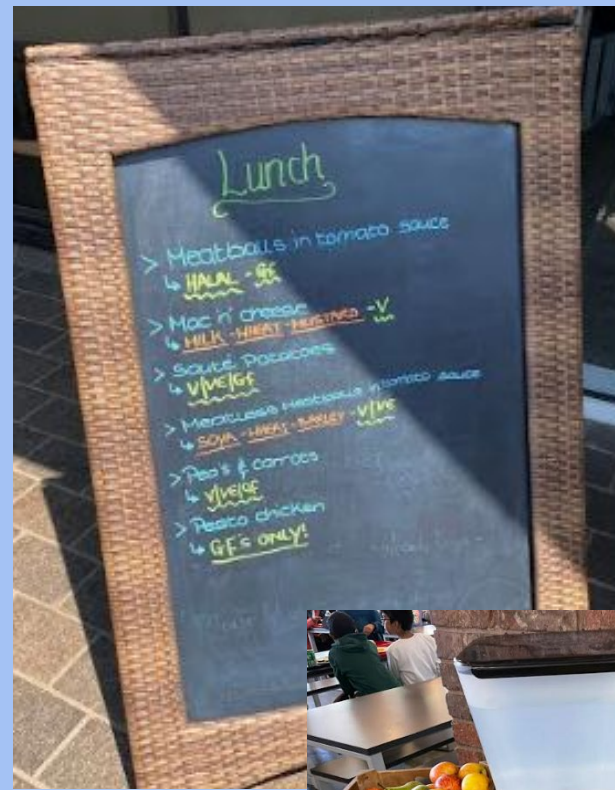 Lunch
> Meatballs in tomato sauce
↳ HALAL - GF
> Mac n' cheese
↳ MILK - WHEAT - MUSTARD - V
> Sauté Potatoes
↳ V/VE/GF
> Meatless Meatballs in tomato sauce
↳ SOYA - WHEAT - BARLEY - V/VE
> Pea's & carrots
↳ V/VE/GF
> Pesto chicken
↳ GF's ONLY!